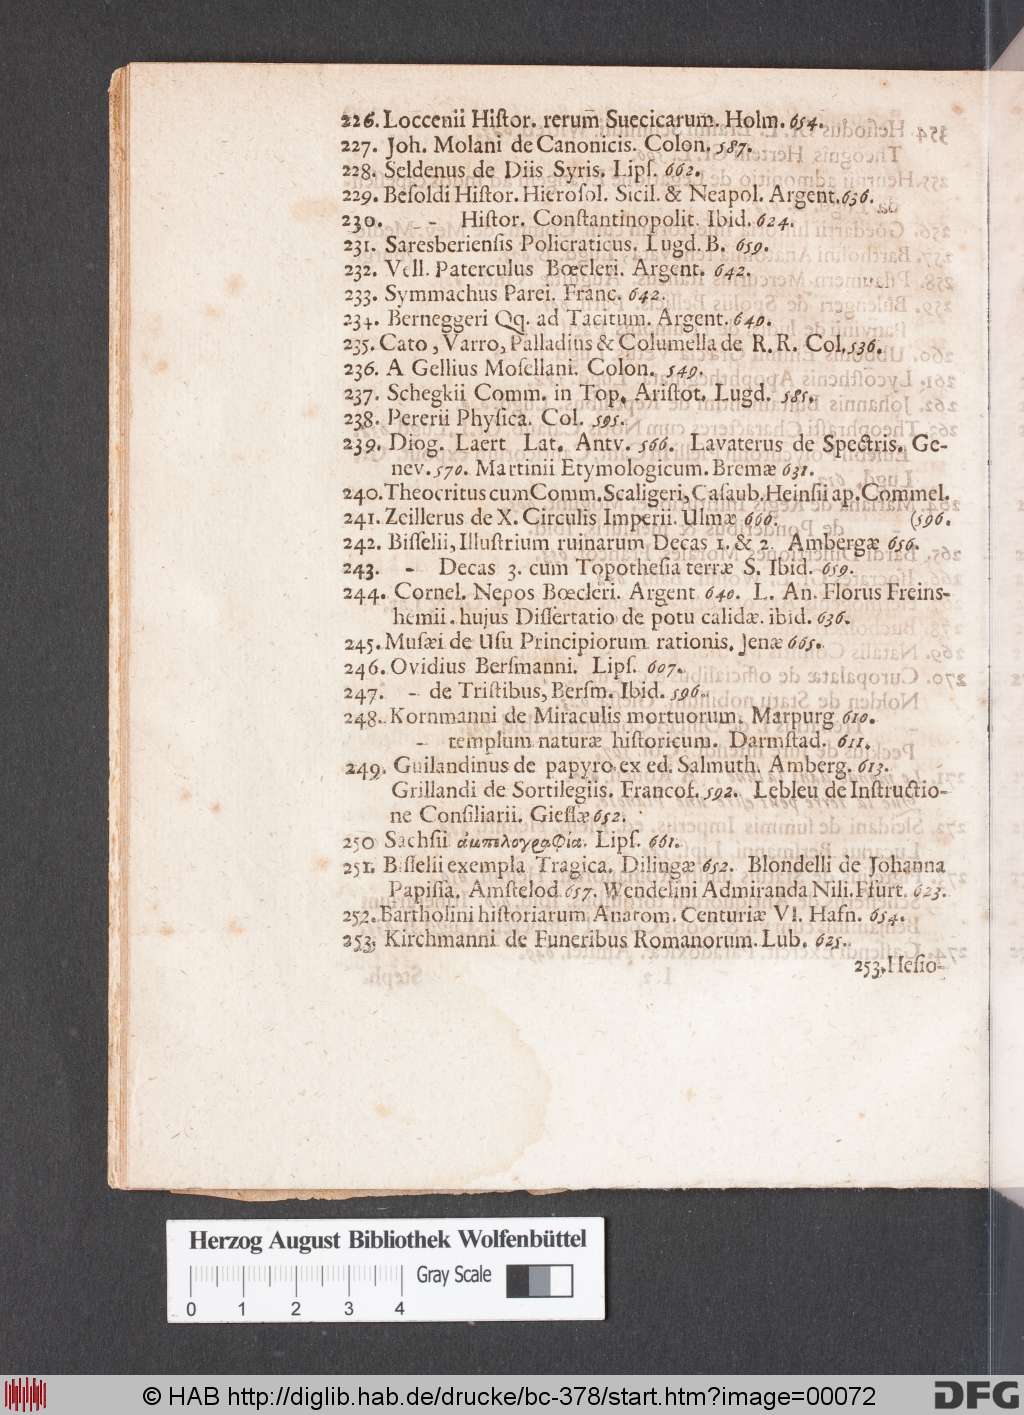 226. Loccenii Hiſtor. rerum̄ Suecicarum. Holm. 654.
227. Joh. Molani de Canonicis. Colon. 587.
228. Seldenus de Diis Syris. Lipſ. 662.
229. Beſoldi Hiſtor. Hieroſol. Sicil. & Neapol. Argent. 636.
230. - Hiſtor. Conſtantinopolit. Ibid. 624.
231. Saresberienſis Policraticus. Lugd. B. 659.
232. Vell. Paterculus Bœcleri. Argent. 642.
233. Symmachus Parei. Franc. 642.
234. Berneggeri Qq. ad Tacitum. Argent. 640.
235. Cato, Varro, Palladius & Columella de R. R. Col. 536.
236. A Gellius Moſellani. Colon. 549.
237. Schegkii Comm. in Top. Ariſtot. Lugd. 585.
238. Pererii Phyſica. Col. 595.
239. Diog. Laert Lat. Antv. 566. Lavaterus de Spectris. Ge-
nev. 570. Martinii Etymologicum. Bremæ 631.
240. Theocritus cum Comm. Scaligeri, Caſaub. Heinſii ap. Commel.
241. Zeillerus de X. Circulis Imperii. Ulmæ 660. (596.
242. Biſſelii, Illuſtrium ruinarum Decas 1. & 2. Ambergæ 656.
243. - Decas 3. cum Topotheſia terræ S. Ibid. 659.
244. Cornel. Nepos Bœcleri. Argent 640. L. An. Florus Freins-
hemii. hujus Diſſertatio de potu calidæ. ibid. 636.
245. Muſæi de Uſu Principiorum rationis. Jenæ 665.
246. Ovidius Berſmanni. Lipſ. 607.
247. - de Triſtibus, Berſm. Ibid. 596.
248. Kornmanni de Miraculis mortuorum. Marpurg 610.
- templum naturæ hiſtoricum. Darmſtad. 611.
249. Guilandinus de papyro ex ed. Salmuth. Amberg. 613.
Grillandi de Sortilegiis. Francof. 592. Lebleu de Inſtructio-
ne Conſiliarii. Gieſſæ 652.
250 Sachſii ἀμπελογραφία. Lipſ. 661.
251. Biſſelii exempla Tragica. Dilingæ 652. Blondelli de Johanna
Papiſſa. Amſtelod 657. Wendelini Admiranda Nili. Ffurt. 623.
252. Bartholini hiſtoriarum Anatom. Centuriæ VI. Hafn. 654.
253. Kirchmanni de Funeribus Romanorum. Lub. 625.
253. Heſio-
Herzog August Bibliothek Wolfenbüttel
Gray Scale
0 1 2 3 4
© HAB http://diglib.hab.de/drucke/bc-378/start.htm?image=00072
DFG